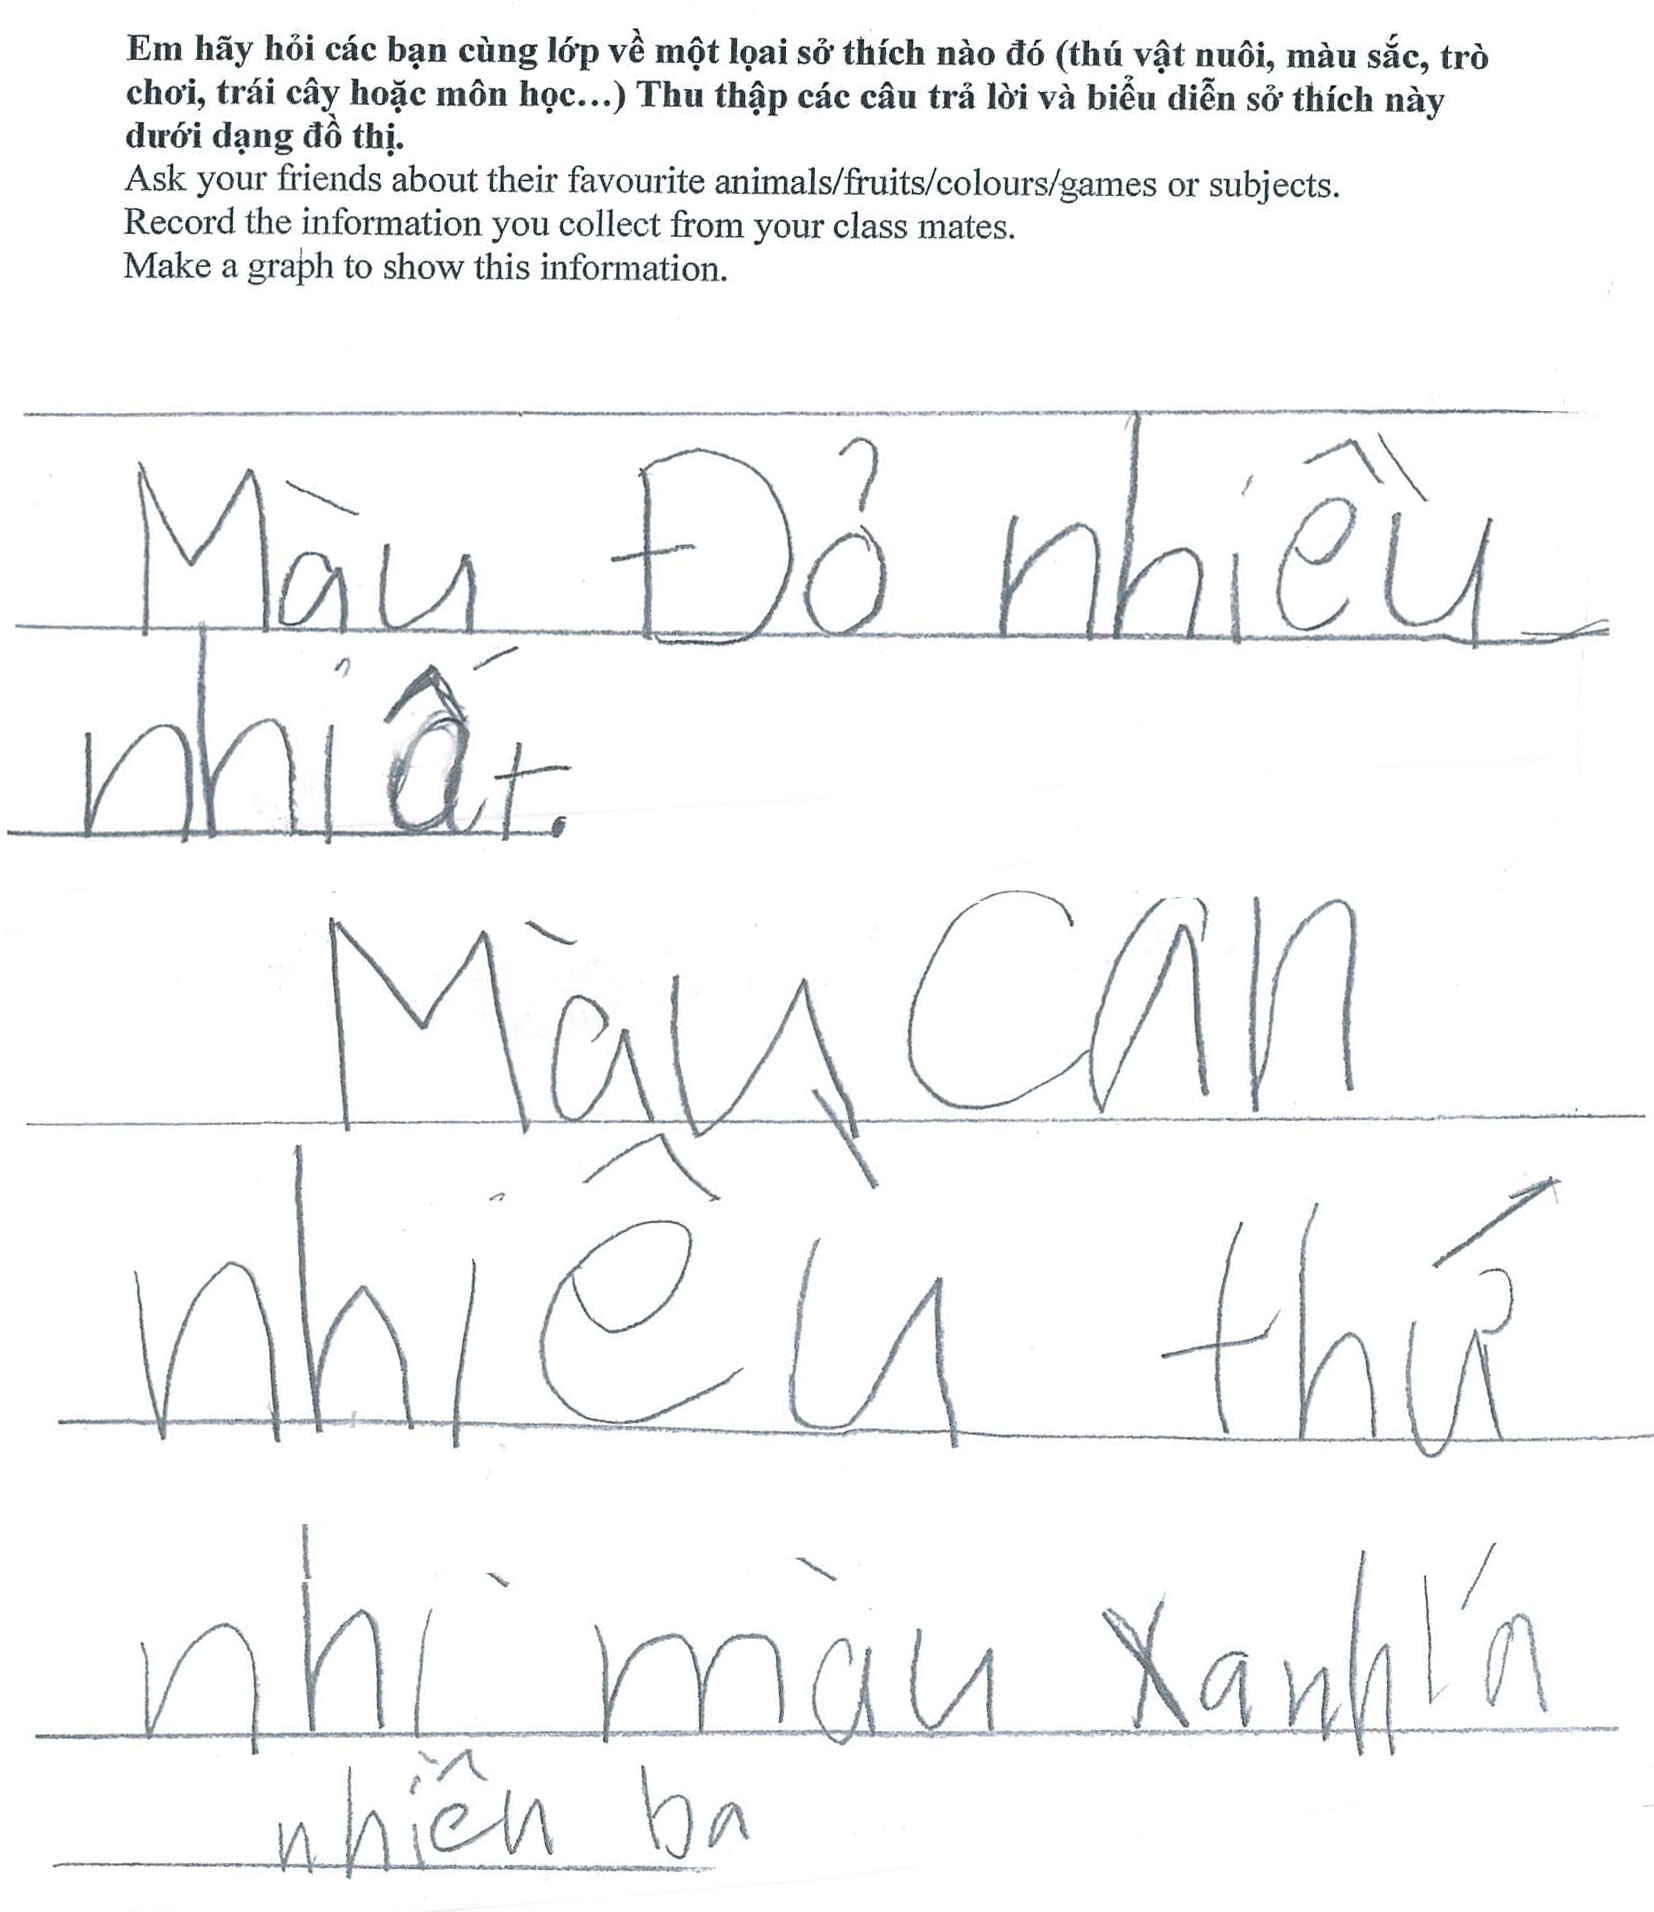 Em hãy hỏi các bạn cùng lớp về một lọai sở thích nào đó (thú vật nuôi, màu sắc, trò
chơi, trái cây hoặc môn học...) Thu thập các câu trả lời và biểu diễn sở thích này
dưới dạng đồ thị.
Ask your friends about their favourite animals/fruits/colours/games or subjects.
Record the information you collect from your class mates.
Make a graph to show this information.
Màu Đỏ nhiều
nhiất.
Màu Can
nhiêu thứ
nhì màu xanh lá
nhiều ba